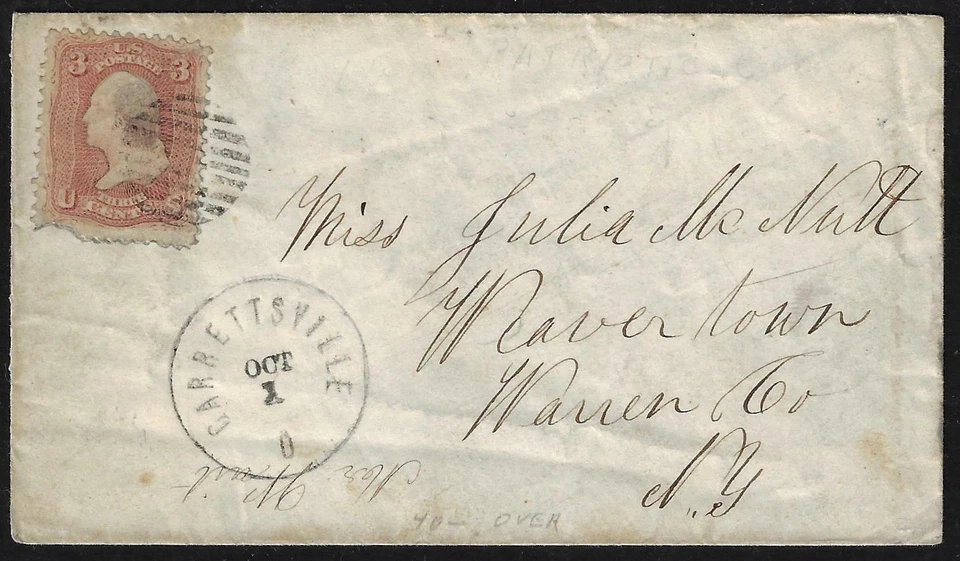 3 U.S. POSTAGE 3
U THREE CENTS
PATRIOTIC
Miss Julia McNutt
Weavertown
Warren Co
N.Y
GARRETTSVILLE
OCT
1
O
40- OVER